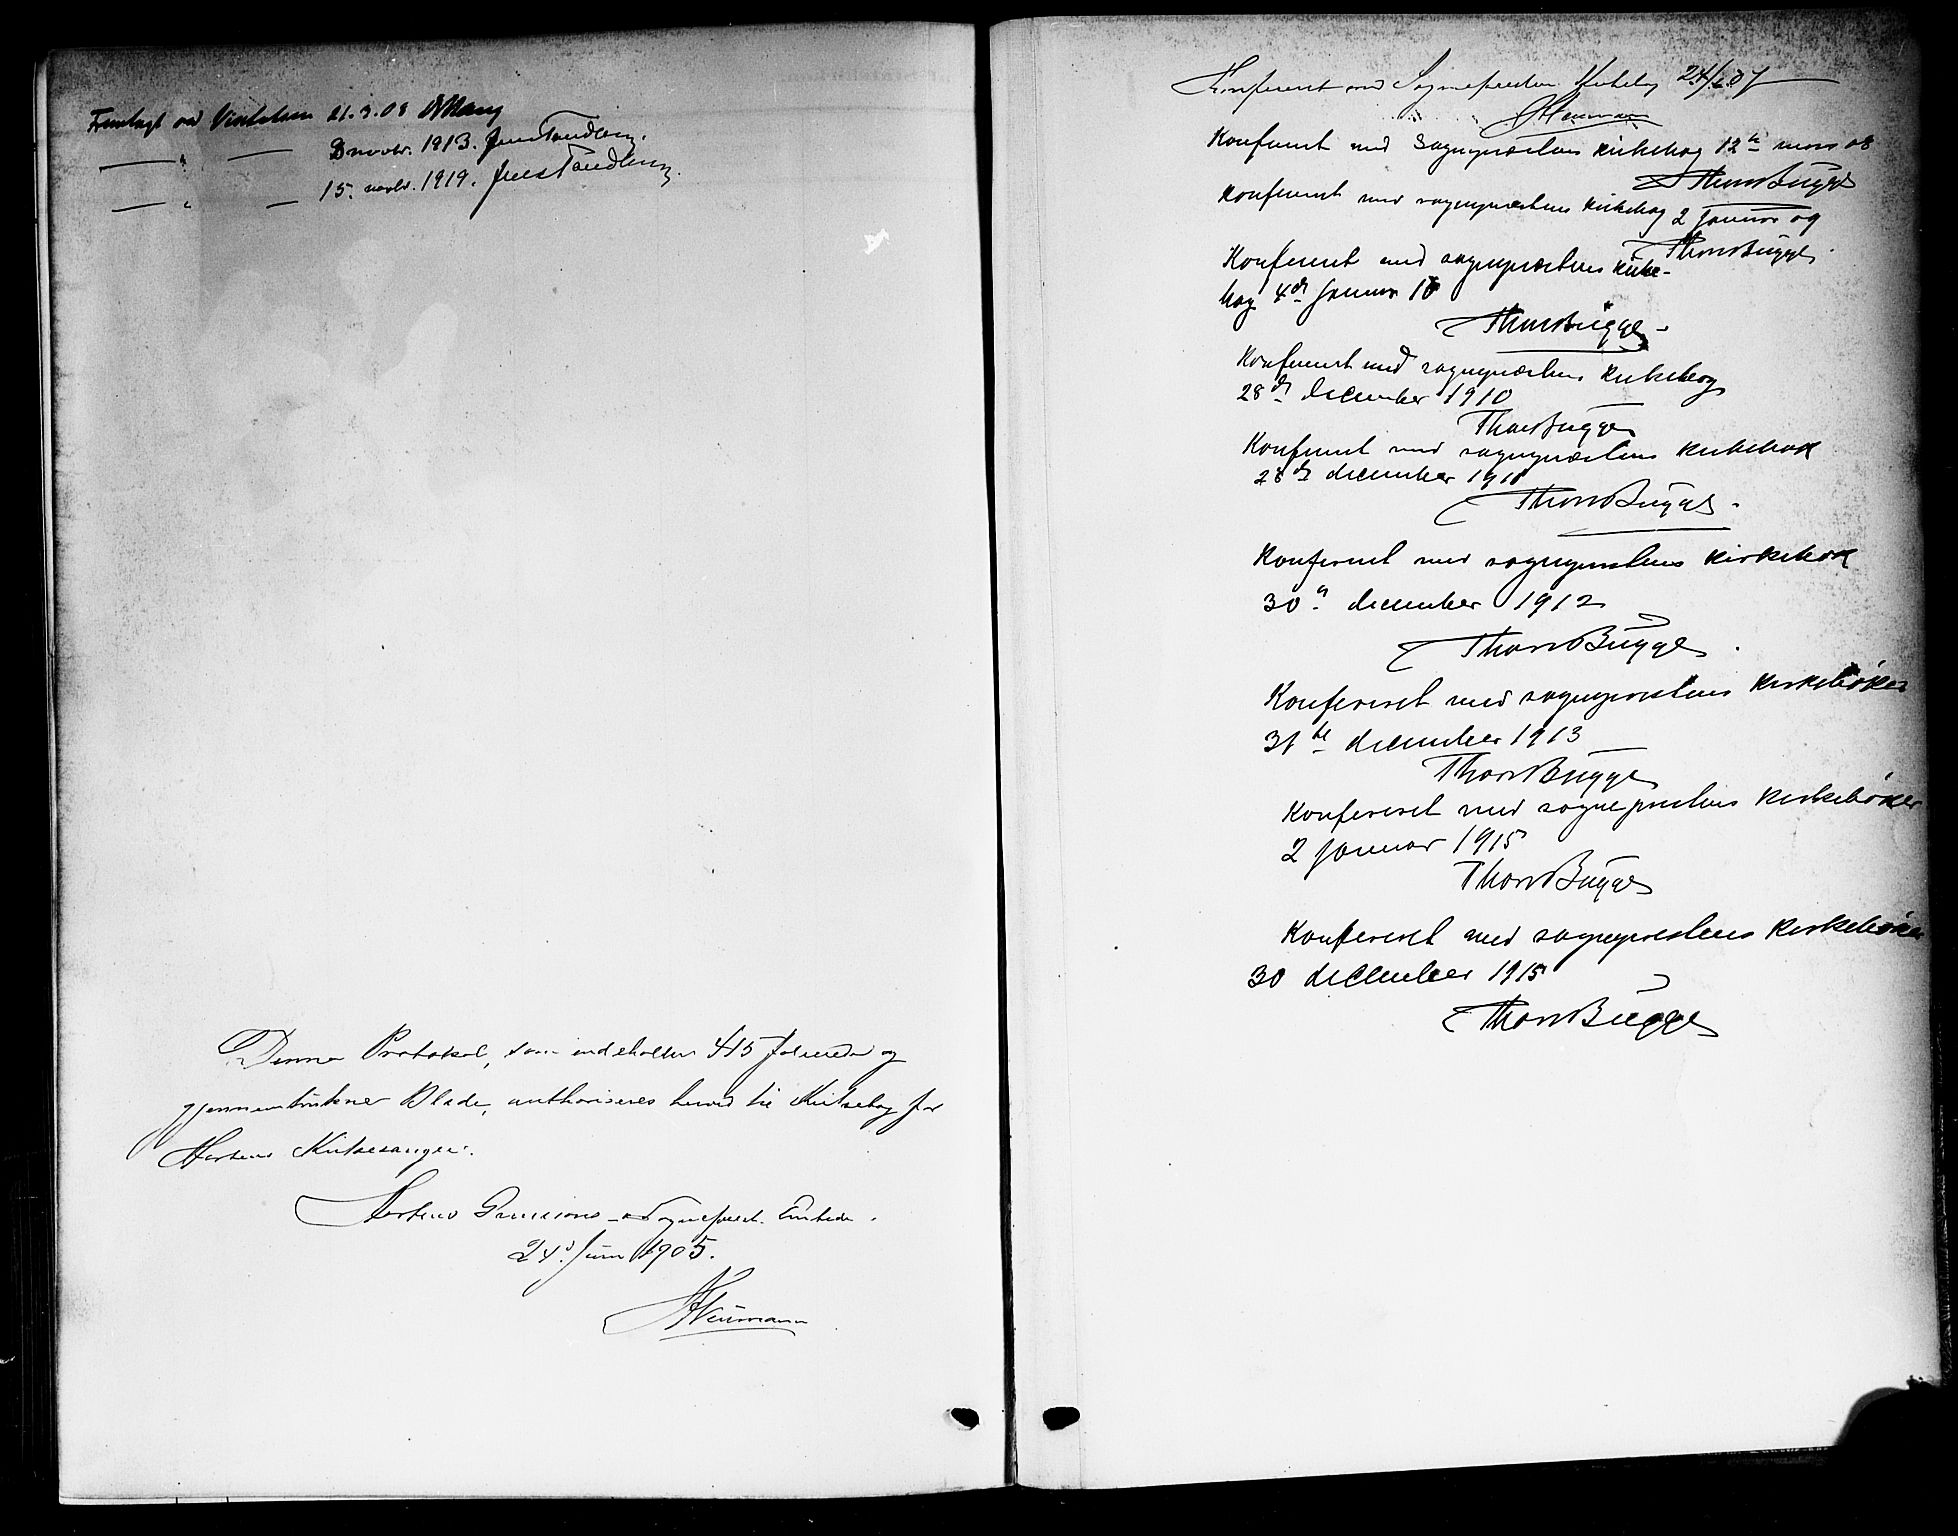 Fremlagt ved Visitatsen 21.3.08
— " — 8 novbr. 1913. Jens Tandberg.
— " — 15. novbr. 1919. Jens Tandberg.
Denne Protokol, som indeholder 415 folierede og
gjennemtrukne Blade, authoriseres herved til Kirkebog for
Hortens Kirkesanger.
Hortens Garnisons- & Sogneprest-Embede.
24de Juni 1905.
Neumann
Konfereret med Sognepræstens Kirkebog
Neumann
Konfereret med Sognepræstens kirkebog 12te mars 08
Thorv Bugge
Konfereret med sognepræstens kirkebog 2 januar 09
Thorv Bugge
Konfereret med sognepræstens kirke-
bog 4de januar 10
Thorv Bugge
Konfereret med sognepræstens kirkebog
28de december 1910
Thorv Bugge
Konfereret med sognepræstens kirkebok
28de december 1911
Thorv Bugge.
Konfereret med sogneprestens kirkebok
30te december 1912
Thorv Bugge.
Konfereret med sogneprestens kirkebøker
31te december 1913
Thorv Bugge
Konfereret med sogneprestens kirkebøker
2 januar 1915
Thorv Bugge
Konfereret med sogneprestens kirkebøker
30 december 1915
Thorv Bugge